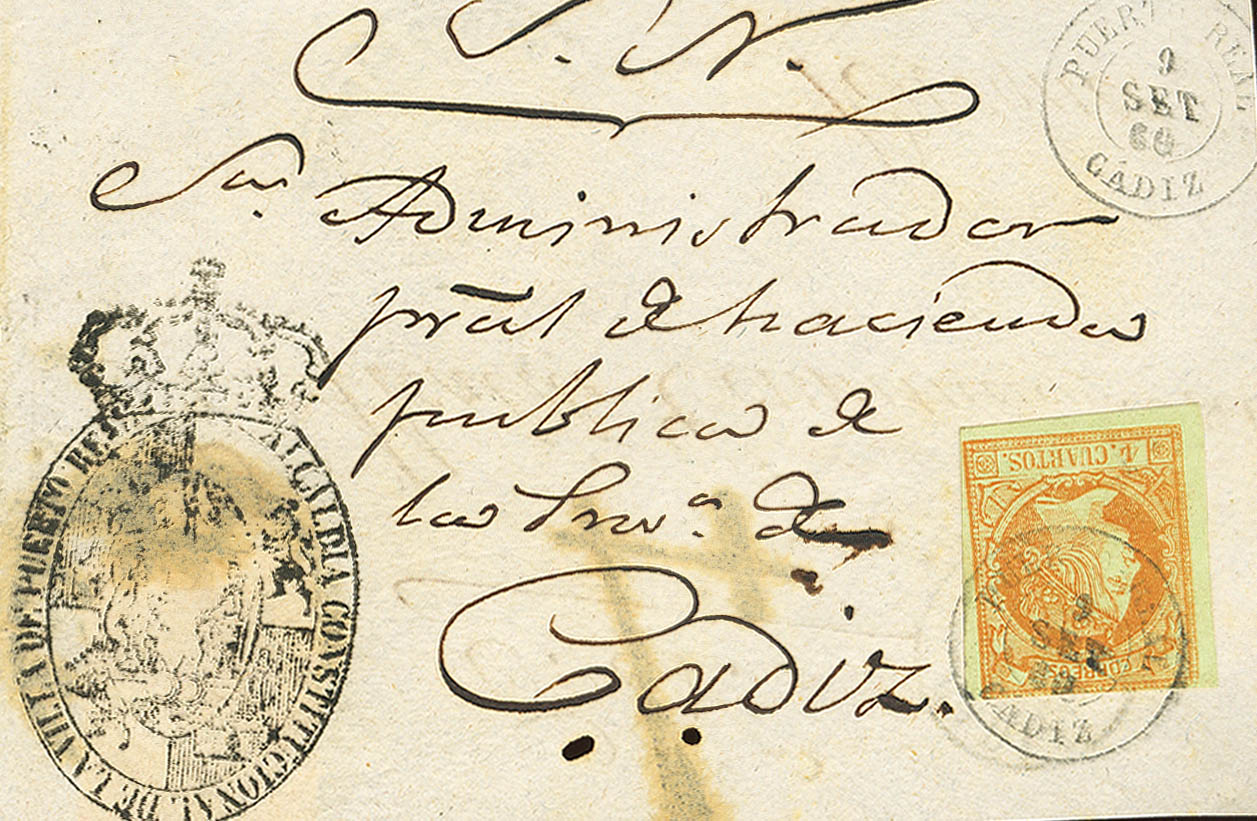 S. N.
Sor Administrador
pral de hacienda
publica de
la Prova de
Cadiz.
PUERTO REAL
9
SET
60
CADIZ
ALCALDIA CONSTITUCIONAL DE LA VILLA DE PUERTO REAL
4. CUARTOS.
CORREOS
9
SET
CADIZ